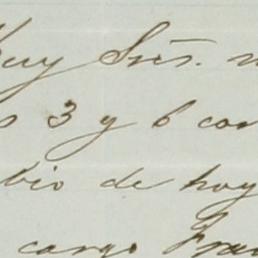 Muy Sres. m
s 3 y 6 cor
bio de hoy
cargo Fran